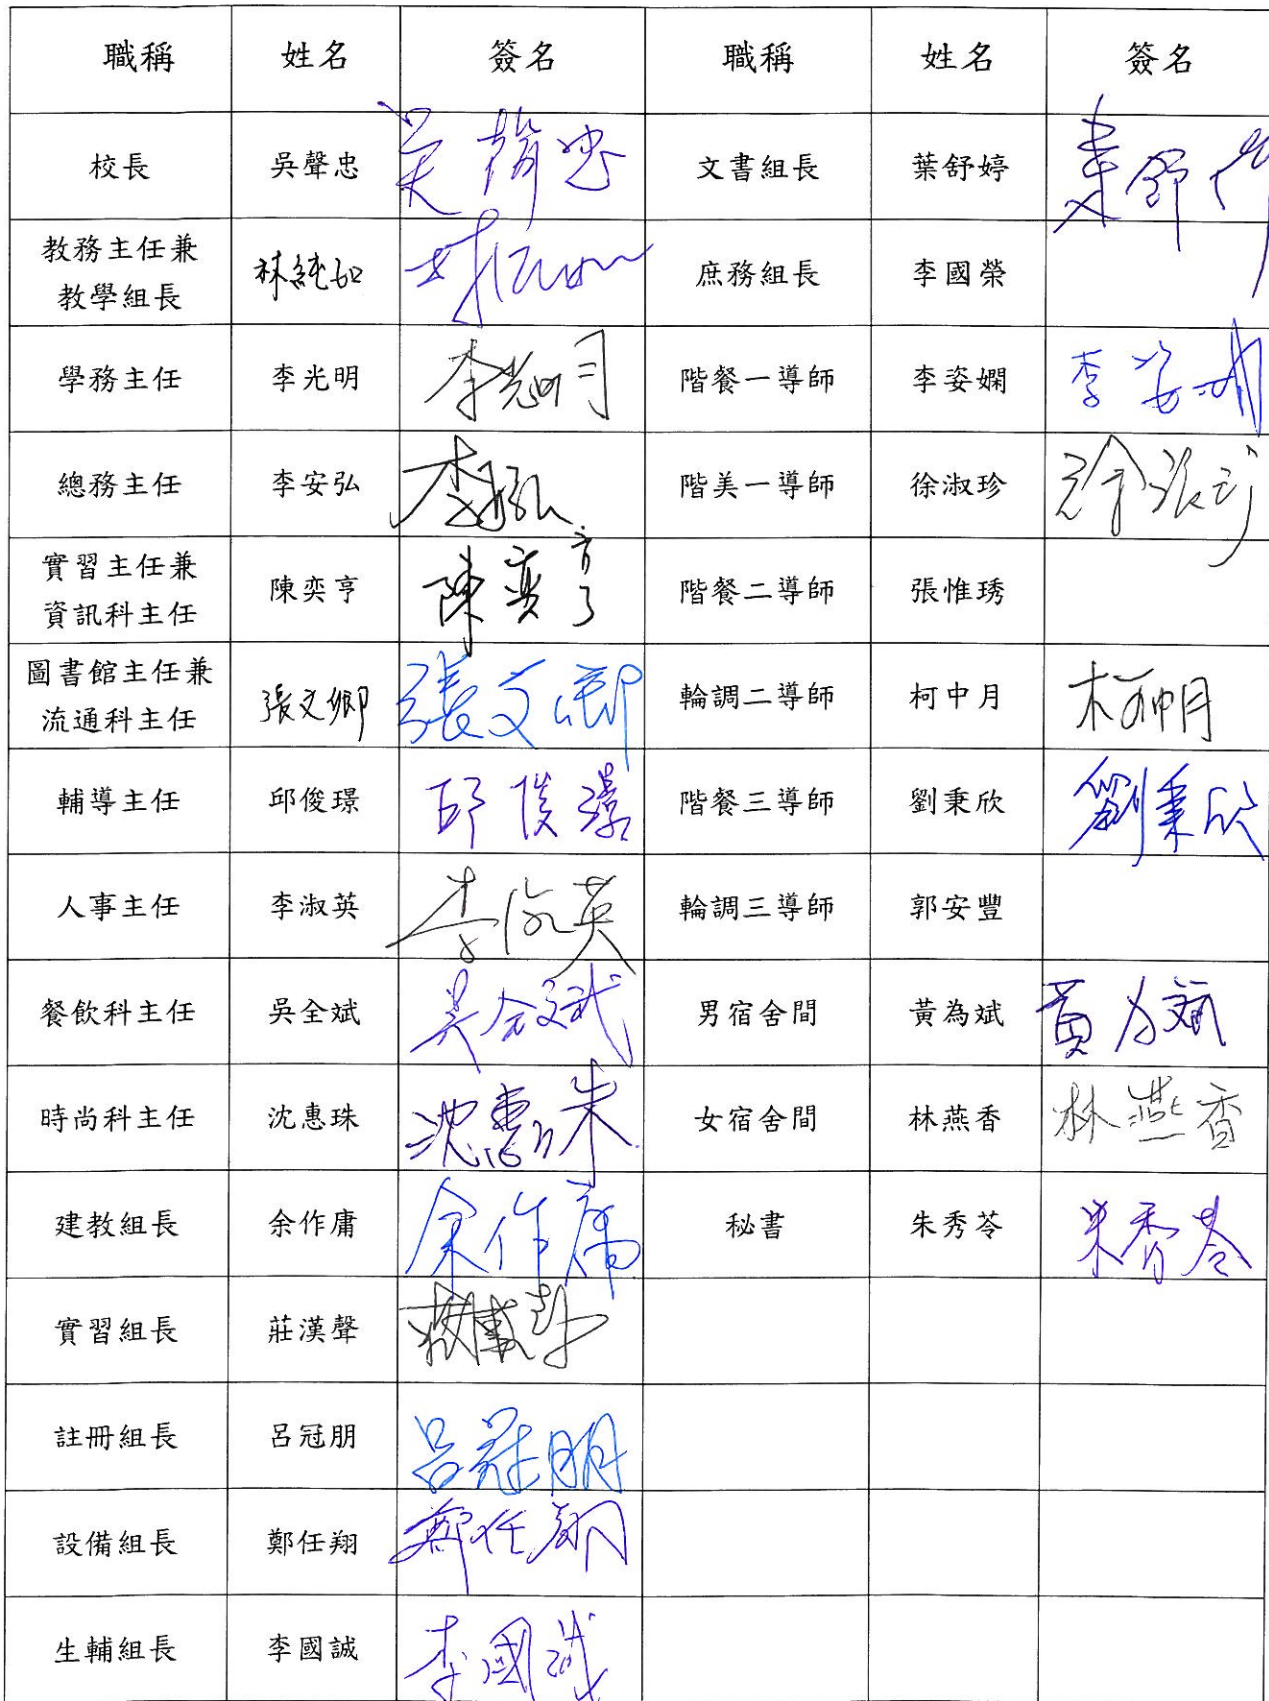 職稱 姓名 簽名 職稱 姓名 簽名
校長 吳聲忠 文書組長 葉舒婷
教務主任兼
教學組長 林純如 庶務組長 李國榮
學務主任 李光明 李光明 階餐一導師 李姿嫻 李姿嫻
總務主任 李安弘 李安弘 階美一導師 徐淑珍 徐淑珍
實習主任兼
資訊科主任 陳奕亨 陳奕亨 階餐二導師 張惟琇
圖書館主任兼
流通科主任 張文鄉 張文鄉 輪調二導師 柯中月 柯中月
輔導主任 邱俊璟 邱俊璟 階餐三導師 劉秉欣 劉秉欣
人事主任 李淑英 李淑英 輪調三導師 郭安豐
餐飲科主任 吳全斌 吳全斌 男宿舍間 黃為斌 黃為斌
時尚科主任 沈惠珠 沈惠珠 女宿舍間 林燕香 林燕香
建教組長 余作庸 余作庸 秘書 朱秀苓 朱秀苓
實習組長 莊漢聲
註冊組長 呂冠朋 呂冠朋
設備組長 鄭任翔 鄭任翔
生輔組長 李國誠 李國誠